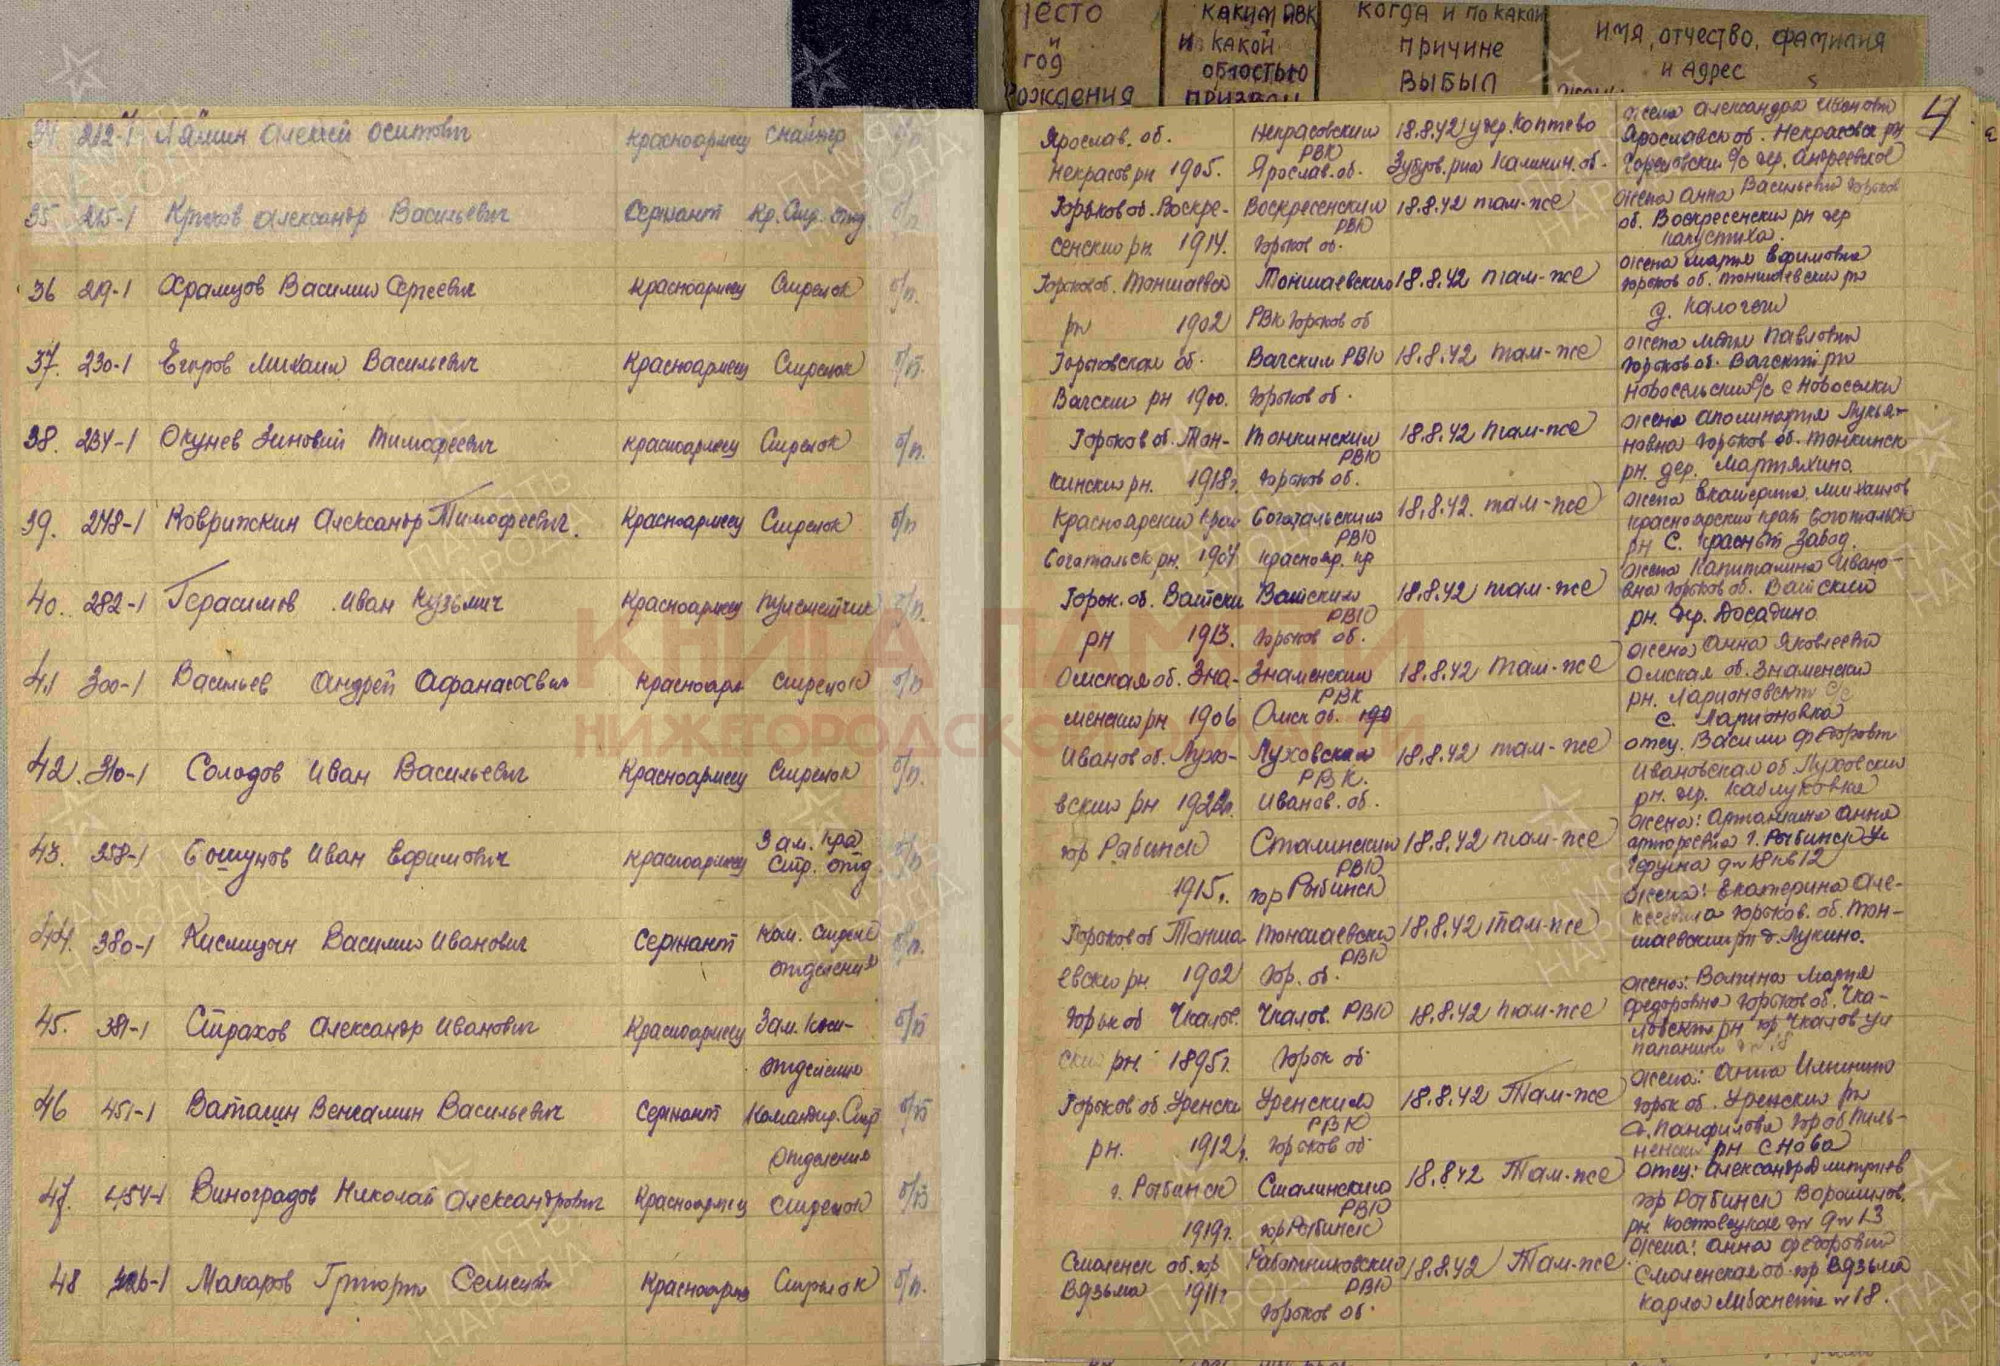 место и год рождения
каким РВК и какой областью призван
когда и по какой причине выбыл
имя, отчество, фамилия и адрес
4
34 212-1 Лямин Алексей Осипович красноармеец снайпер б/п
Ярослав. об. Некрасовский РВК 18.8.42 у дер. Коптево
Некрасов рн 1905. Ярослав. об. Зубцов. р-на Калинин. об.
жена Александра Ивановн
Ярославск об. Некрасовск рн
с/с дер. Андреевское
35 215-1 Крюков Александр Васильевич Сержант Кр. Стр. отд. б/п
Горьков об. Воскре- Воскресенский РВК 18.8.42 там-же
сенский рн. 1914. Горьков об.
жена Анна Васильевн Горьков
об. Воскресенский рн дер
Капустиха.
36 219-1 Храмцов Василий Сергеевич красноармеец Стрелок б/п.
Горьков об. Тоншаевск Тоншаевский 18.8.42 там-же
рн 1902 РВК Горьков об
жена Мария Ефимовна
Горьков об. Тоншаевский рн
37. 230-1 Егоров Михаил Васильевич Красноармеец Стрелок б/п.
Горьковская об. Вачский РВК 18.8.42 там-же
Вачский рн 1900. Горьков об.
жена Павловна
Горьков об. Вачский рн
Новосельский с/с с Новоселки
38. 234-1 Окунев Зиновий Тимофеевич красноармеец Стрелок б/п.
Горьков об. Тон- Тонкинский РВК 18.8.42 там-же
кинский рн. 1918г. Горьков об.
жена Аполинария Лукья-
новна Горьков об. Тонкинск
рн. дер. Мартяхино.
39. 248-1 Коврижкин Александр Тимофеевич. Красноармеец Стрелок б/п
Красноярский край Боготольский РВК 18.8.42. там-же
Боготольск рн. 1904 Краснояр. кр
жена Екатерина Михайлов
Красноярский край Боготольск
рн С. Красный Завод.
40. 282-1 Герасимов Иван Кузьмич Красноармеец пулеметчик б/п.
Горьк. об. Вачски Вачский РВК 18.8.42 там-же
рн 1913. Горьков об.
жена Капиталина Ивано-
вна Горьков об. Вачский
рн. дер. Досадино
41 300-1 Васильев Андрей Афанасьевич Красноарм стрелок б/п
Омская об. Зна- Знаменский РВК 18.8.42 там-же
менский рн 1906 Омск об.
жена Анна Яковлевн
Омская об. Знаменский
рн. Ларионовский с/с
с. Ларионовка
42. 310-1 Солодов Иван Васильевич Красноармеец Стрелок б/п.
Иванов об. Лухо- Луховский РВК. 18.8.42 там-же
вский рн Иванов. об.
отец. Василий Федорович
Ивановская об Луховский
рн. дер. Каблуковка
43. 358-1 Башунов Иван Ефимович красноармеец Зам. Кра Стр. отд. б/п
гор Рыбинск Сталинский РВК 18.8.42 там-же
1915г. гор Рыбинск
жена: Анна
г. Рыбинск ул
Герцена д № 18 кв 12
44. 380-1 Кислицын Василий Иванович Сержант Ком. стрелк отделения б/п.
Горьков об Тонша- Тоншаевский РВК 18.8.42 там-же
евский рн 1902 Гор. об.
жена: Екатерина Але-
ксеевна Горьков. об. Тон-
шаевский рн д. Лукино.
45. 381-1 Страхов Александр Иванович Красноармеец Зам. Ком- отделения б/п
Горьк об Чкалов. Чкалов. РВК 18.8.42 там-же
ский рн. 1895г. Горьк об
жена: Мария
Федоровна Горьков об. Чка-
ловский рн гор. Чкалов ул
Папанина
46 451-1 Ваташин Вениамин Васильевич Сержант Командир. Стр Отделения б/п
Горьков об. Уренски Уренский РВК 18.8.42 Там-же
рн. 1912г. Горьков об
жена: Анна
Горьк об. Уренский рн
д. Панфилово Гор об Пиль-
ненский рн с Нова
47. 454-1 Виноградов Николай Александрович Красноармеец стрелок б/п
г. Рыбинск Сталинский РВК 18.8.42 Там-же
1919г. гор Рыбинск
отец: Александр Дмитриев
гор Рыбинск Ворошилов.
рн
48 Макаров Григорий Семенович Красноарм Стрелок б/п.
Смоленск об. гор Работниковский РВК 18.8.42 Там-же
Вязьма 1911г Горьков об.
жена: Анна Федоровн
Смоленская об. гор Вязьма
Карла Либкнехта № 18.
КНИГА ПАМЯТИ
НИЖЕГОРОДСКОЙ ОБЛАСТИ
ПАМЯТЬ НАРОДА